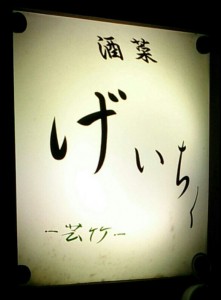 酒菜
げいちく
-芸竹-